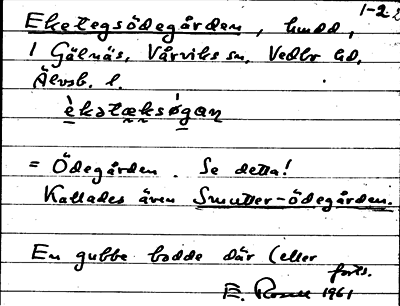 1-22
Eketegsödegården, hmdd,
1 Gälnäs, Vårviks sn, Vedbo hd,
Älvsb. l.
èkətæksǿgaṇ
= Ödegården. Se detta!
Kallades även Smutter-ödegården.
En gubbe bodde där (eller
forts.
E. 1961